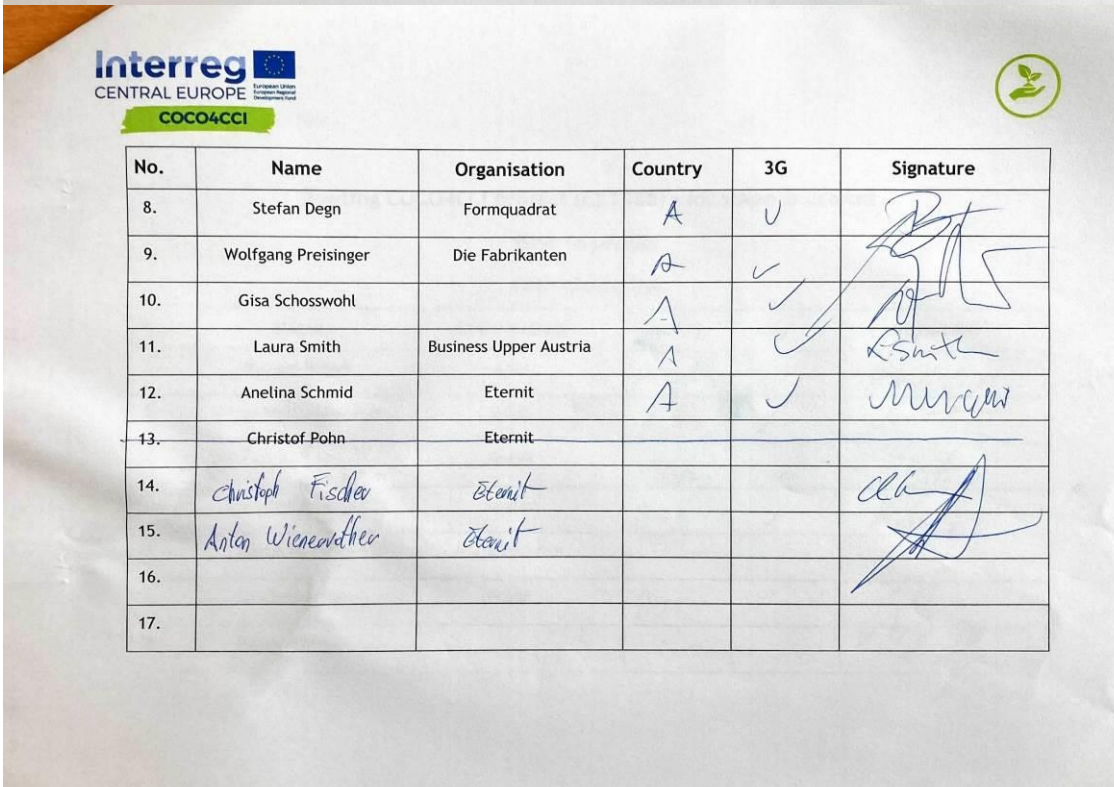 Interreg
CENTRAL EUROPE
European Union
European Regional
Development Fund
COCO4CCI
No. Name Organisation Country 3G Signature
8. Stefan Degn Formquadrat A ✓
9. Wolfgang Preisinger Die Fabrikanten A ✓
10. Gisa Schosswohl A ✓
11. Laura Smith Business Upper Austria A ✓ L.Smith
12. Anelina Schmid Eternit A ✓
13. Christof Pohn Eternit
14. Christoph Fischer Eternit
15. Anton Eternit
16.
17.